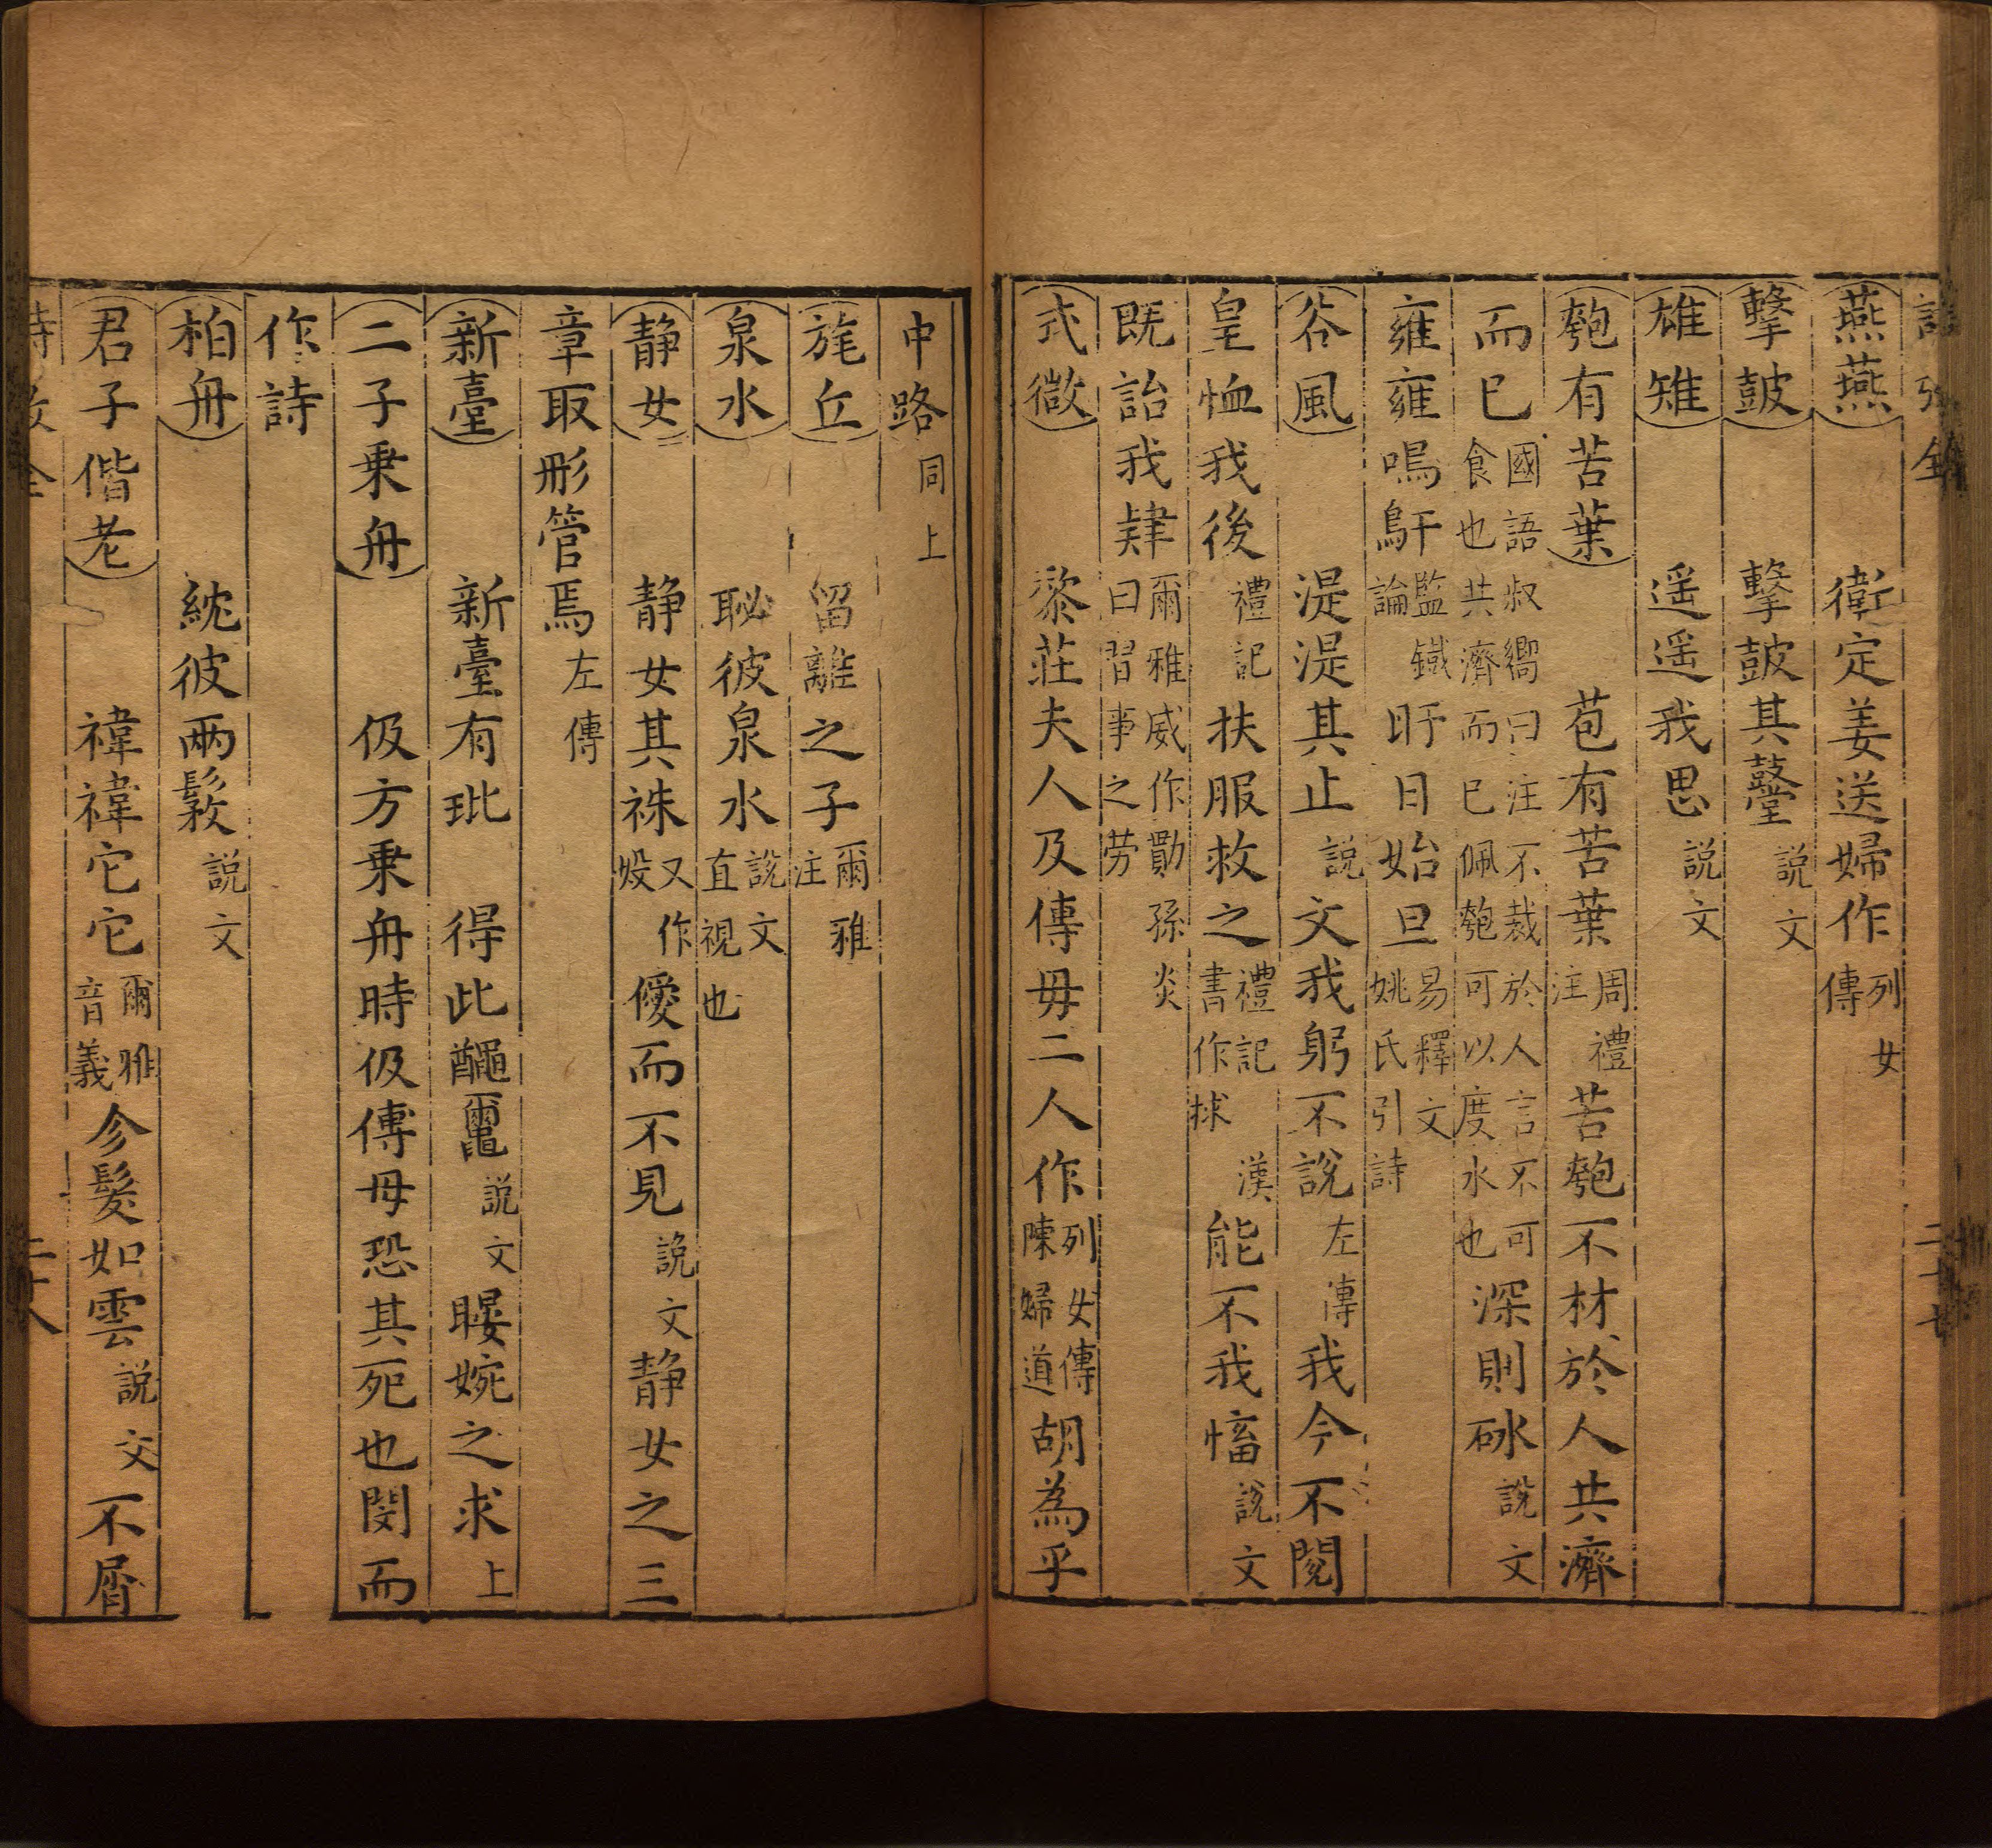 燕燕 衛定姜送婦作列女傳
擊鼓 擊鼓其鼞說文
雄雉 遥遥我思說文
匏有苦葉 苞有苦葉周禮注苦匏不材於人共濟
而已國語叔嚮曰注不裁於人言不可食也共濟而已佩匏可以度水也深則砅說文
雍雍鳴鳱監鐵論旴日始旦易釋文姚氏引詩
谷風 湜湜其止說文我躬不說左傳我今不閱
皇恤我後禮記扶服救之禮記漢書作捄能不我慉說文
既詒我肄爾雅威作勩孫炎曰習事之劳
式微 黎莊夫人及傅毋二人作列女傳陳婦道胡為乎
中路同上
旄丘 留離之子爾雅注
泉水 䀣彼泉水說文直視也
静女 静女其袾又作㛱僾而不見說文静女之三
章取彤管焉左傳
新臺 新臺有玼 得此𪓰𪓿說文暥婉之求上
二子乗舟 伋方乗舟時伋傅毋恐其死也閔而
作詩
柏舟 紞彼兩鬏說文
君子偕老 禕禕它它爾雅音義㐱髮如雲說文不屑